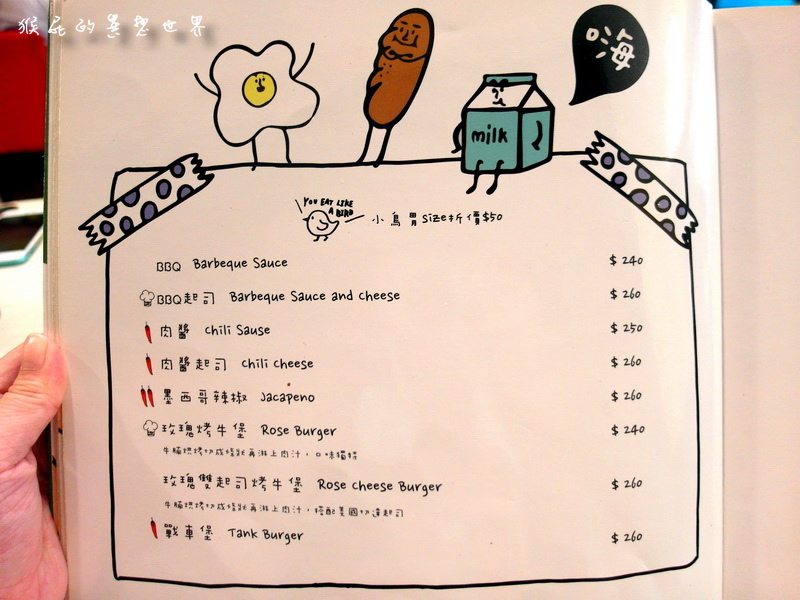 猴屁的異想世界
嗨
milk
YOU EAT LIKE
A BIRD
小鳥胃size折價$50
BBQ Barbeque Sauce $240
BBQ起司 Barbeque Sauce and cheese $260
肉醬 chili Sause $250
肉醬起司 chili cheese $260
墨西哥辣椒 Jacapeno $260
玫瑰烤牛堡 Rose Burger $240
牛腩烘烤切成塊狀再淋上肉汁，口味獨特
玫瑰雙起司烤牛堡 Rose cheese Burger $260
牛腩烘烤切成塊狀再淋上肉汁，搭配美國切達起司
戰車堡 Tank Burger $260